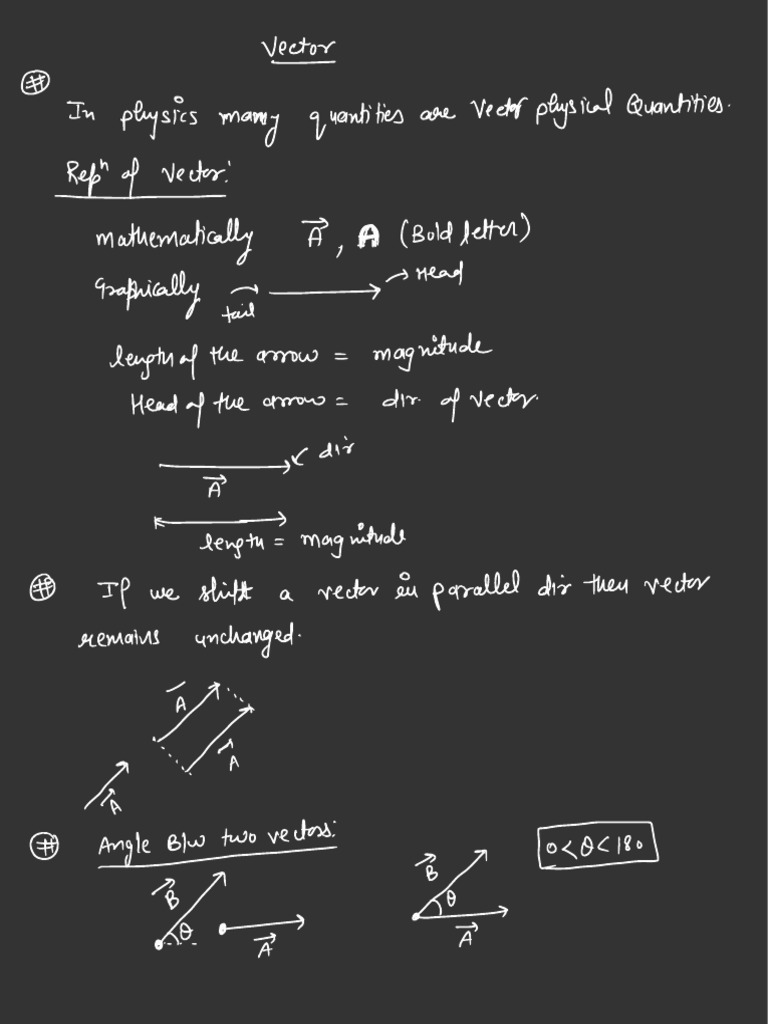 Vector
#
In physics many quantities are Vector physical Quantities.
Repⁿ of Vector:
mathematically A⃗, A (Bold letter)
Graphically tail → Head
length of the arrow = magnitude
Head of the arrow = dir. of vector.
dir
A⃗
length = magnitude
# If we shift a vector in parallel dir then vector
remains unchanged.
A⃗
A⃗
A⃗
# Angle B/w two vectors:
0<θ<180
B⃗ θ A⃗
B⃗ θ A⃗